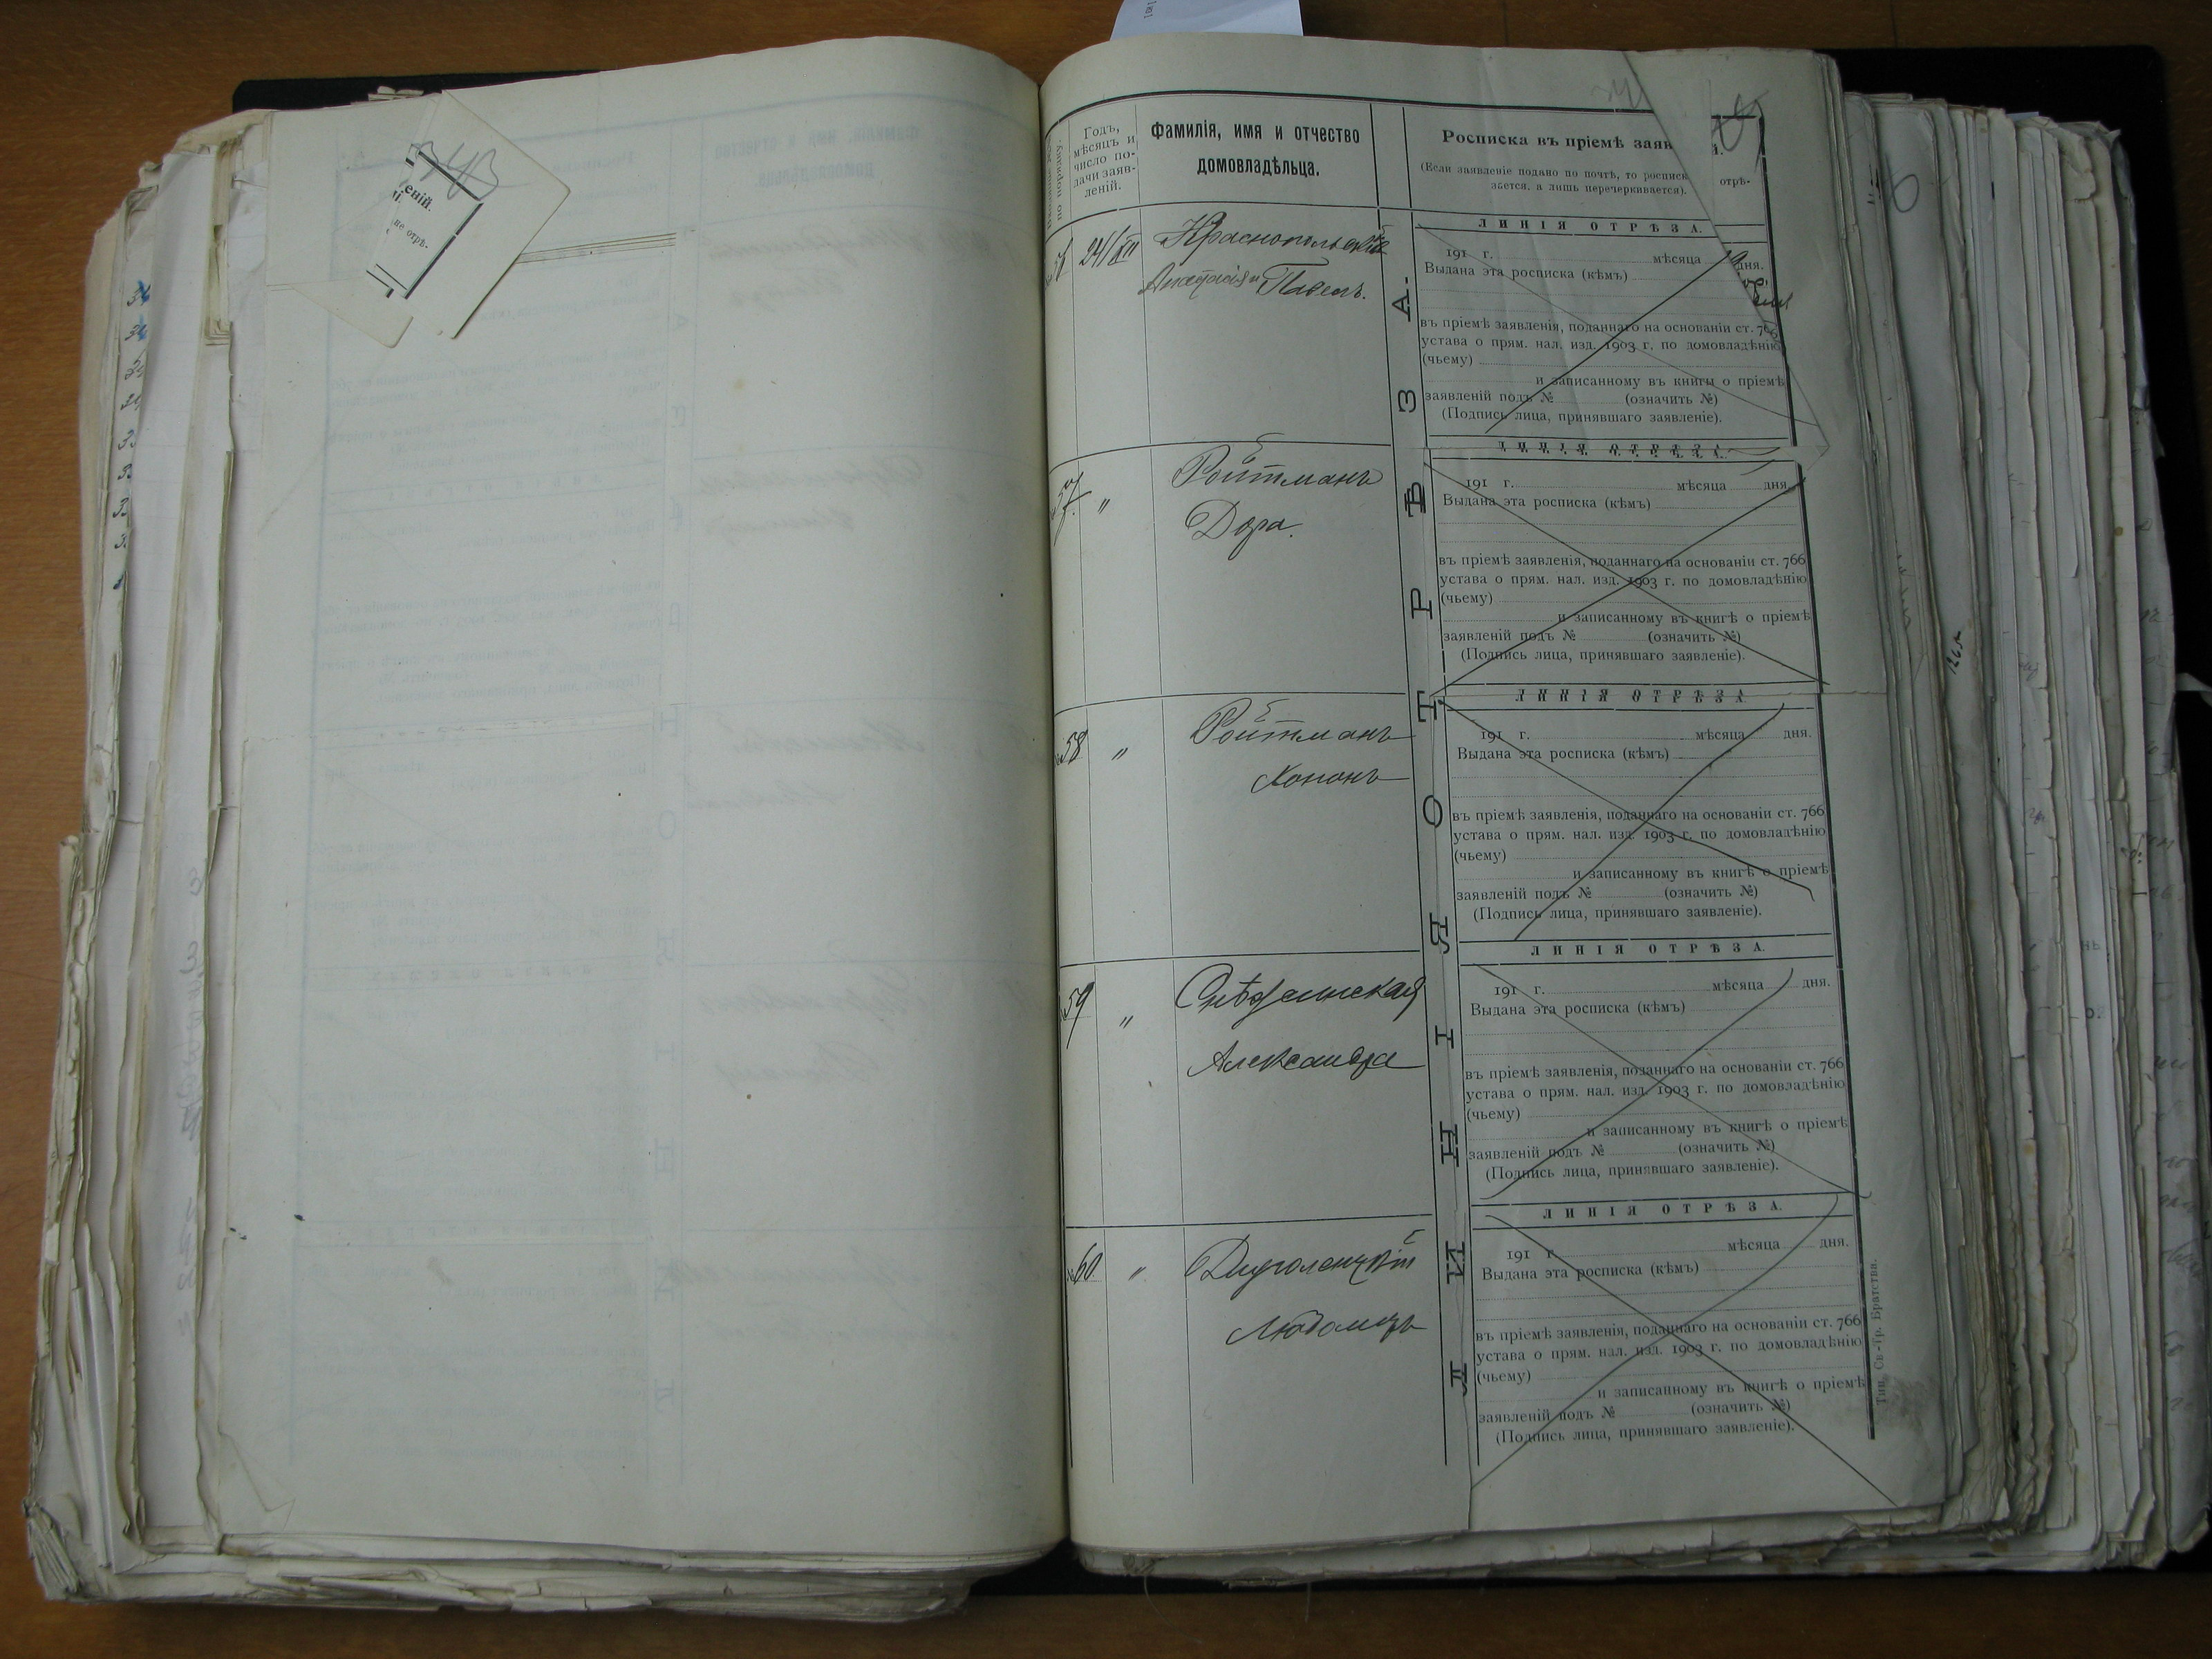 343
еній.
не отрѣ-
по порядку.
Годъ,
мѣсяцъ и
число по-
дачи заяв-
леній.
Фамилія, имя и отчество
домовладѣльца.
Росписка въ пріемѣ заяв
(Если заявленіе подано по почтѣ, то росписк
зается, а лишь перечеркивается).
отрѣ-
ЛИНІЯ ОТРѢЗА.
56
24/XII
Краснопольскіе
Анастасія и Павелъ.
191 г. мѣсяца дня.
Выдана эта росписка (кѣмъ)
въ пріемѣ заявленія, поданнаго на основаніи ст. 766
устава о прям. нал. изд. 1903 г. по домовладѣнію
(чьему)
и записанному въ книгы о пріемѣ
заявленій подъ № (означить №)
(Подпись лица, принявшаго заявленіе).
ЛИНІЯ ОТРѢЗА.
57
"
Ройтманъ
Дора.
191 г. мѣсяца дня.
Выдана эта росписка (кѣмъ)
въ пріемѣ заявленія, поданнаго на основаніи ст. 766
устава о прям. нал. изд. 1903 г. по домовладѣнію
(чьему)
и записанному въ книгѣ о пріемѣ
заявленій подъ № (означить №)
(Подпись лица, принявшаго заявленіе).
ЛИНІЯ ОТРѢЗА
58
"
Ройтманъ
Хононъ
191 г. мѣсяца дня.
Выдана эта росписка (кѣмъ)
въ пріемѣ заявленія, поданнаго на основаніи ст. 766
устава о прям. нал. изд. 1903 г. по домовладѣнію
(чьему)
и записанному въ книгѣ о пріемѣ
заявленій подъ № (означить №)
(Подпись лица, принявшаго заявленіе).
ЛИНІЯ ОТРѢЗА.
59
"
Александра
191 г. мѣсяца дня.
Выдана эта росписка (кѣмъ)
въ пріемѣ заявленія, поданнаго на основаніи ст. 766
устава о прям. нал. изд. 1903 г. по домовладѣнію
(чьему)
и записанному въ книгѣ о пріемѣ
заявленій подъ № (означить №)
(Подпись лица, принявшаго заявленіе).
ЛИНІЯ ОТРѢЗА.
60
"
191 г. мѣсяца дня.
Выдана эта росписка (кѣмъ)
въ пріемѣ заявленія, поданнаго на основаніи ст. 766
устава о прям. нал. изд. 1903 г. по домовладѣнію
(чьему)
и записанному въ книгѣ о пріемѣ
заявленій подъ № (означить №)
(Подпись лица, принявшаго заявленіе).
ЛИНІЯ ОТРѢЗА.
Тип. Св.-Тр. Братства.